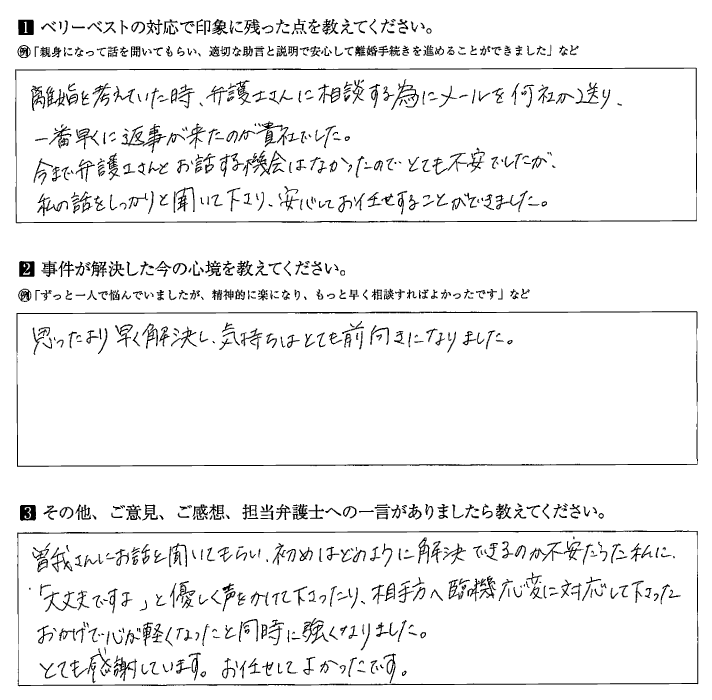 1 ベリーベストの対応で印象に残った点を教えてください。
例「親身になって話を聞いてもらい、適切な助言と説明で安心して離婚手続きを進めることができました」など
離婚を考えていた時、弁護士さんに相談する為にメールを何社か送り、
一番早くに返事が来たのが貴社でした。
今まで弁護士さんとお話する機会はなかったのでとても不安でしたが、
私の話をしっかりと聞いて下さり、安心してお任せすることができました。
2 事件が解決した今の心境を教えてください。
例「ずっと一人で悩んでいましたが、精神的に楽になり、もっと早く相談すればよかったです」など
思ったより早く解決し、気持ちはとても前向きになりました。
3 その他、ご意見、ご感想、担当弁護士への一言がありましたら教えてください。
曽我さんにお話を聞いてもらい、初めはどのように解決できるのか不安だった私に、
「大丈夫ですよ」と優しく声をかけて下さったり、相手方へ臨機応変に対応して下さった
おかげで心が軽くなったと同時に強くなりました。
とても感謝しています。お任せしてよかったです。